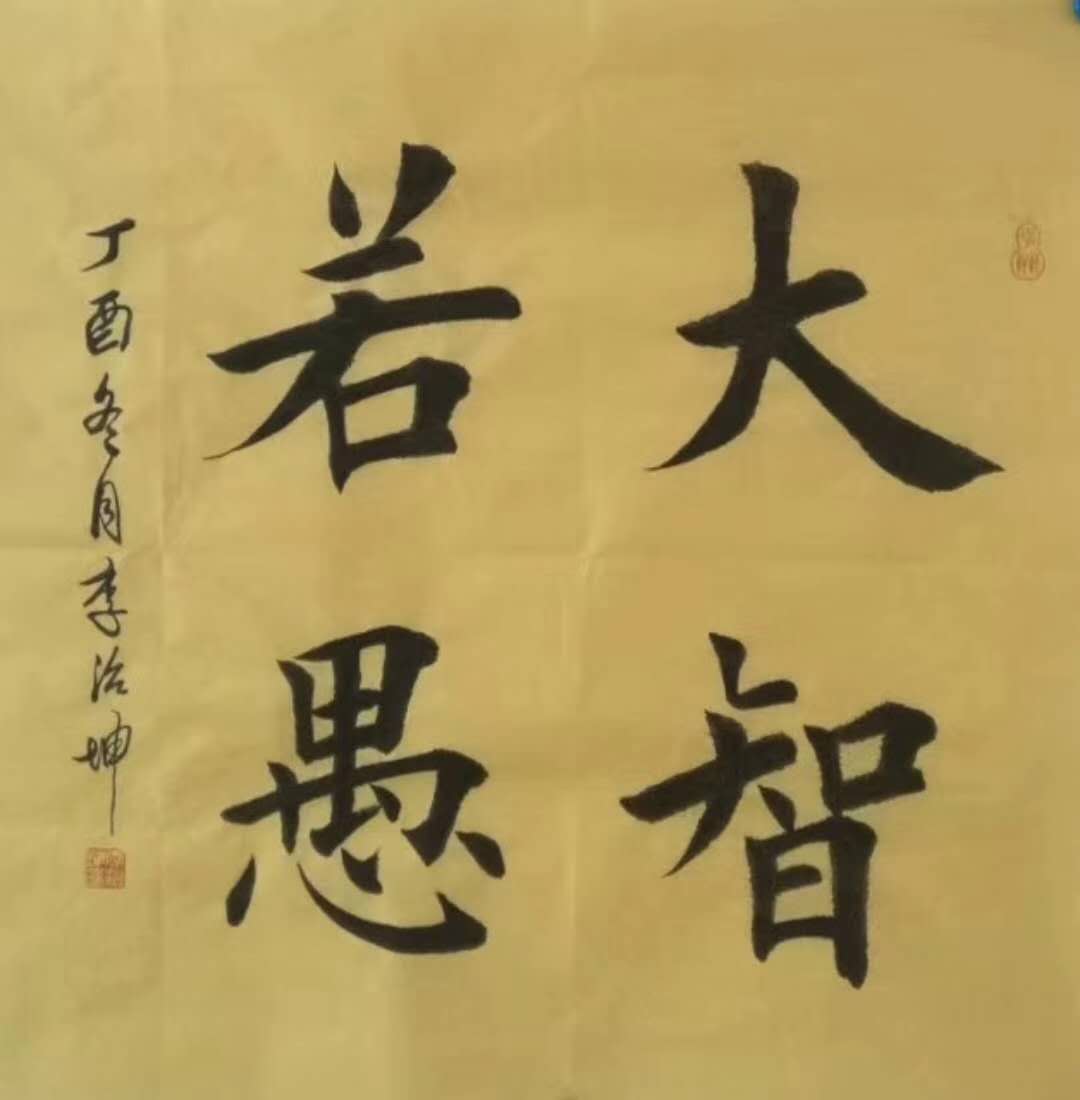 大智
若愚
丁酉冬月李治坤